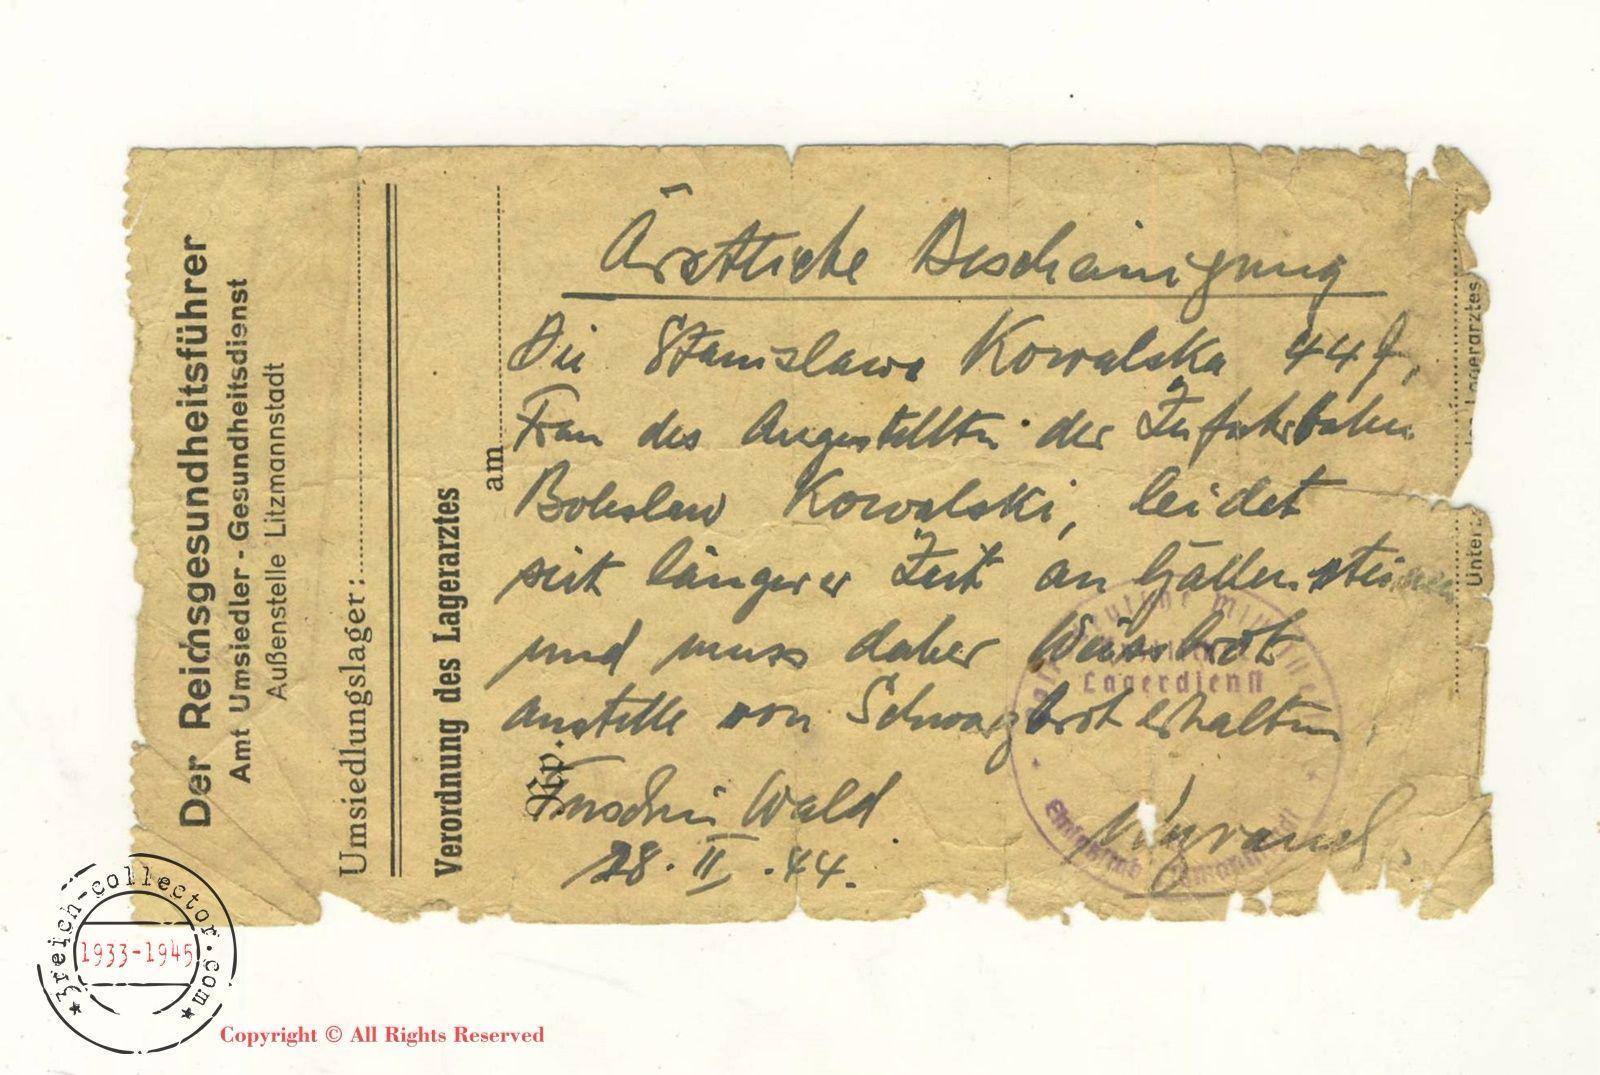 Der Reichsgesundheitsführer
Amt Umsiedler - Gesundheitsdienst
Außenstelle Litzmannstadt
Umsiedlungslager:
Verordnung des Lagerarztes
am
Rp.
Ärztliche Bescheinigung
Die Stanislawa Kowalska 44 J,
Frau des Angestellten der Zufuhrbahn
Boleslaw Kowalski, leidet
seit längerer Zeit an Gallensteinen
und muss daher Weissbrot
anstelle von Schwarzbrot erhalten.
Wald
28. II. 44.
Lagerdienst
Lagerarztes
3reich-collector.com
1933-1945
Copyright © All Rights Reserved